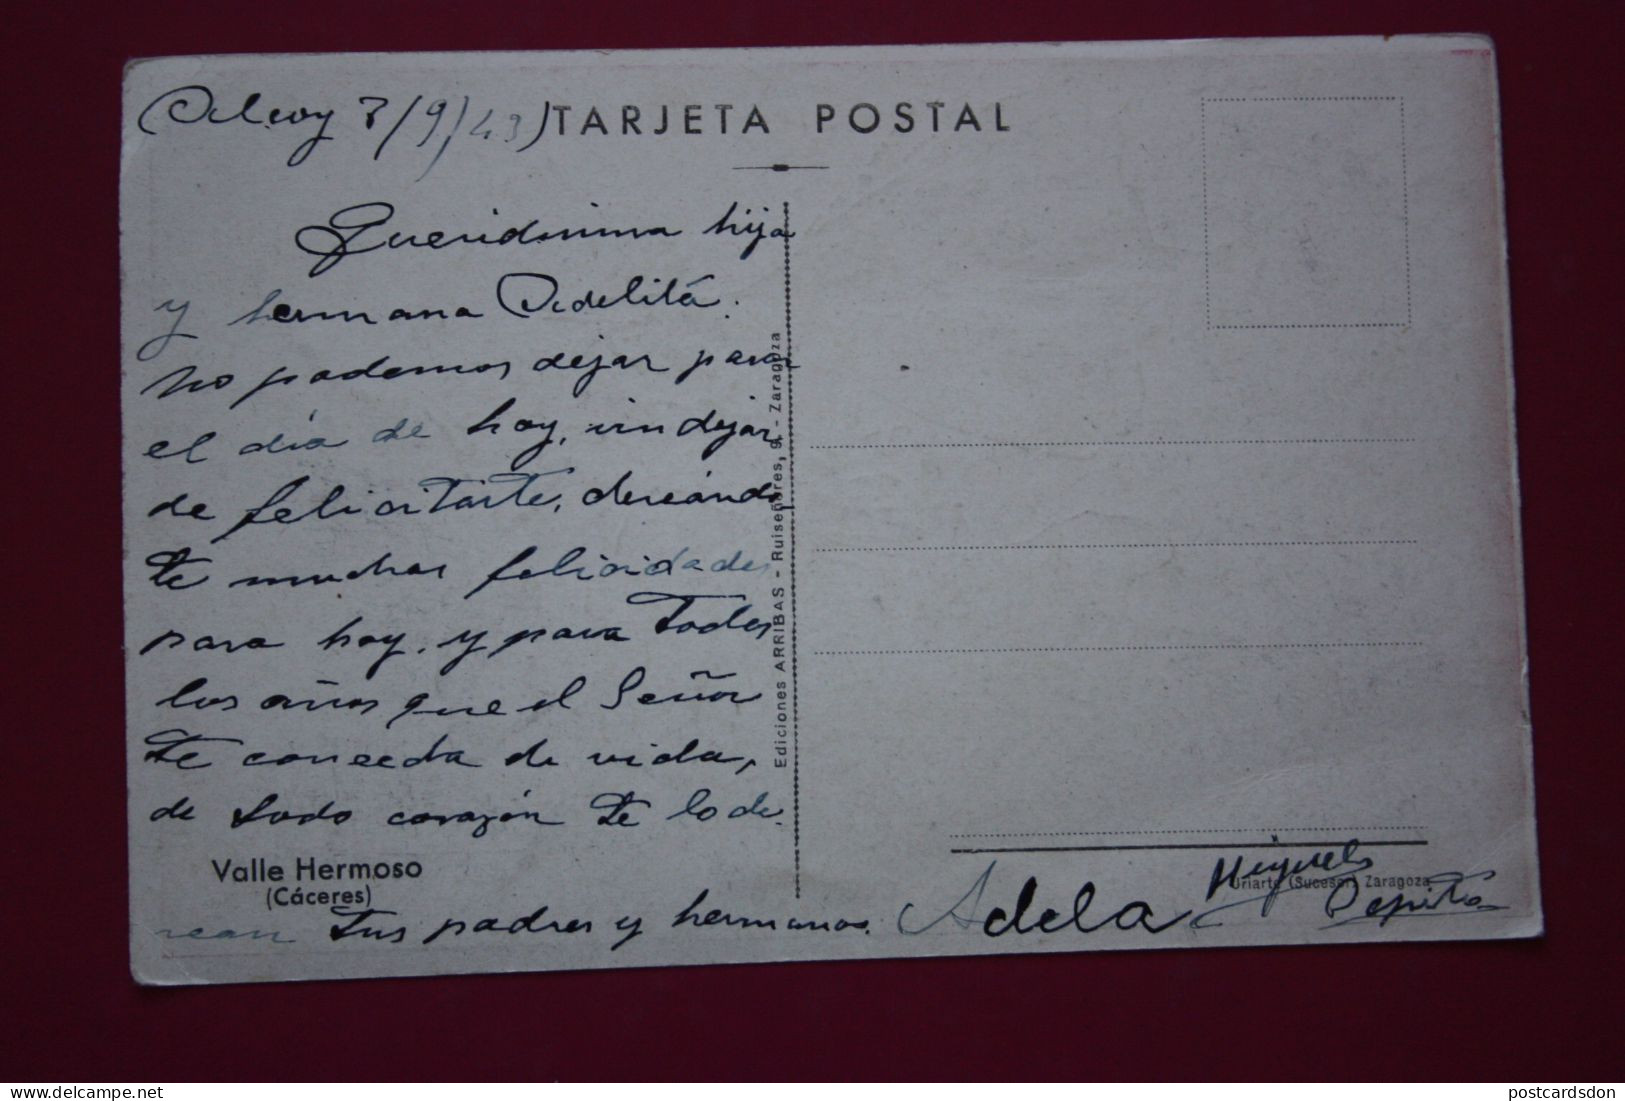 Alcoy 7/9/43
TARJETA POSTAL
Queridisima hija
y hermana Adelitá.
no podemos dejar pasar
el día de hoy, sin dejar
de felicitarte, deseándo
te muchas felicidades
para hoy, y para todos
los años que el Señor
te conceda de vida,
de todo corazón te lo de
sean tus padres y hermanos.
Adela
Miguel
Pepita
Valle Hermoso
(Cáceres)
Ediciones ARRIBAS - Ruiseñores, 9. - Zaragoza
Uriarte (Sucesor) Zaragoza
postcardsdon